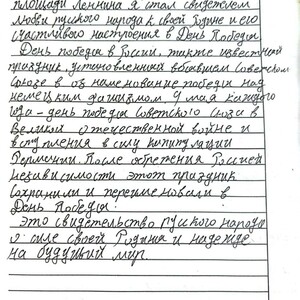 площади Леннина я стал свидетелем
люди руского народа к своей Родне и его
счастливого настроения в День Победы
День победы в Росии, также известный
праздник, установленней в бывшем советском
Союзе в ознаменование победы над
немецким фашизмом. 9 мая каждого
года - день победы Советского Союза в
Великой отечественной войне и
вступления в силу капитуляции
Германии. После обретения Росией
независимости этотт праздник
сохранили и переименовали в
День Победы!
это свидетельство руского народа
о силе своей Родины и надежде
на будущий мир.